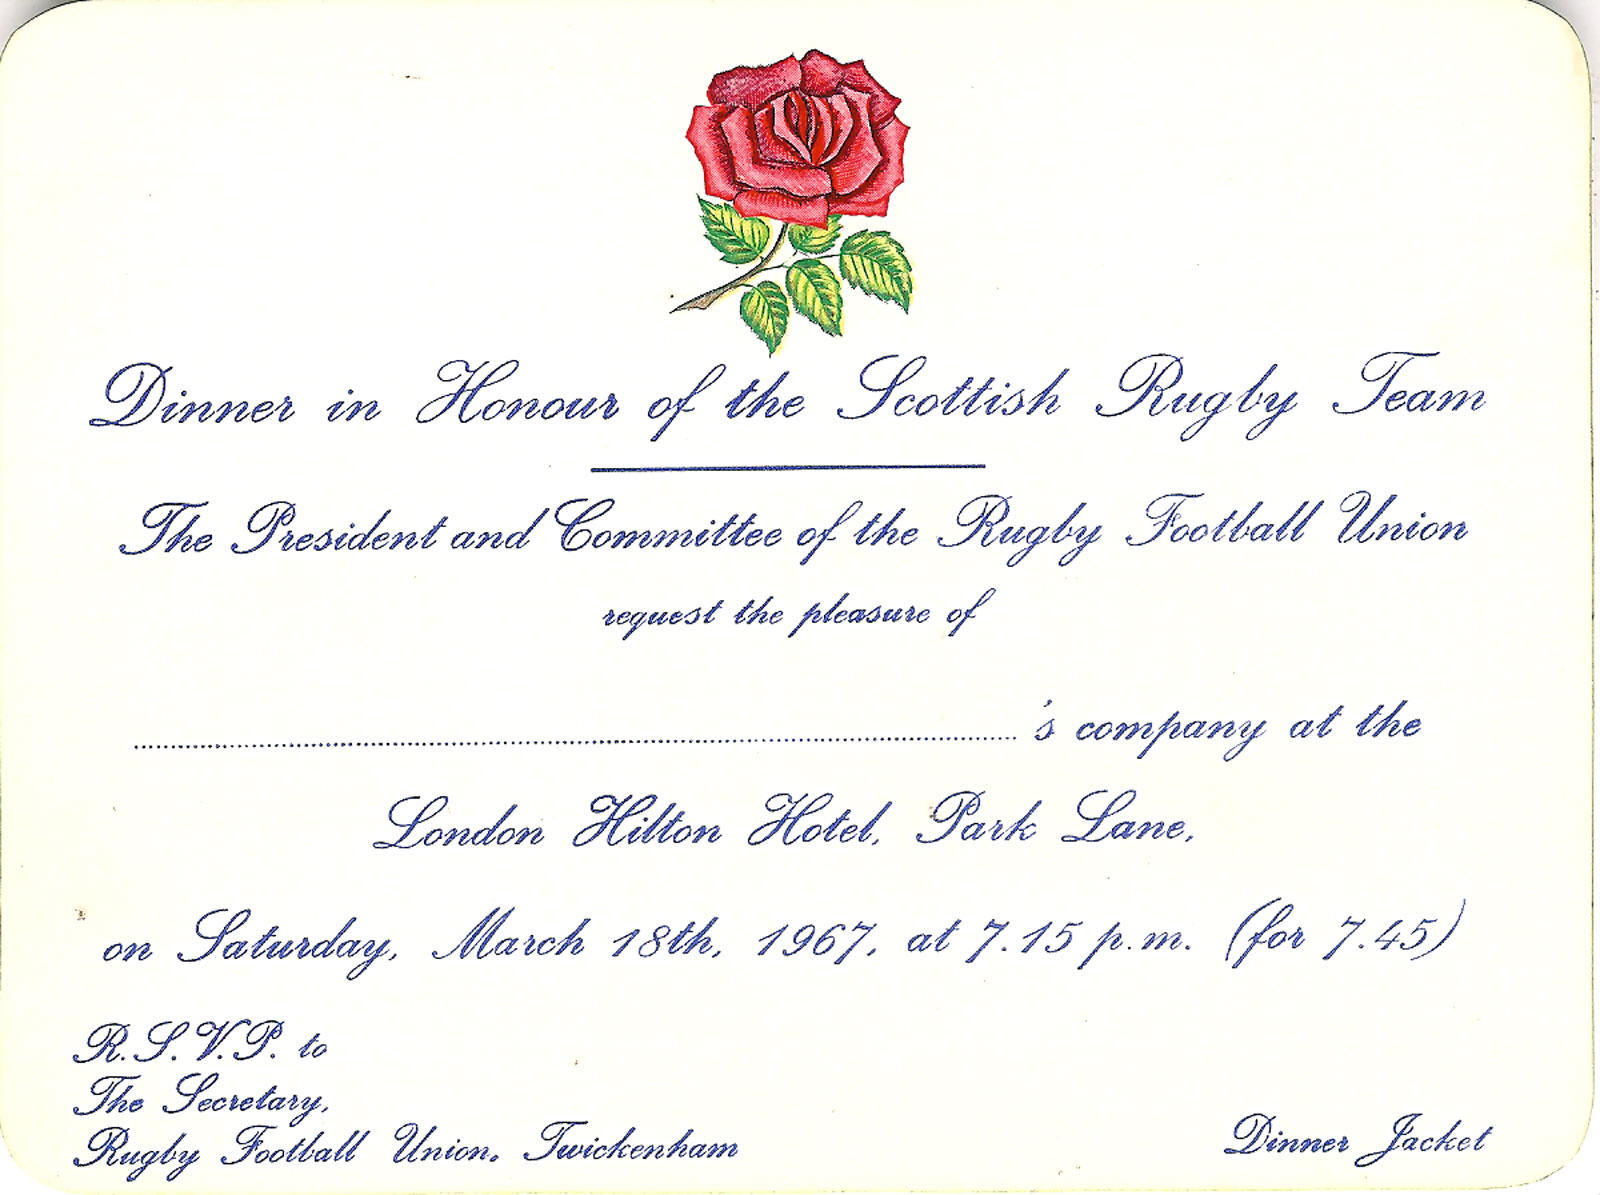 Dinner in Honour of the Scottish Rugby Team
The President and Committee of the Rugby Football Union
request the pleasure of
's company at the
London Hilton Hotel, Park Lane,
on Saturday, March 18th, 1967, at 7.15 p.m. (for 7.45)
R.S.V.P. to
The Secretary,
Rugby Football Union, Twickenham
Dinner Jacket